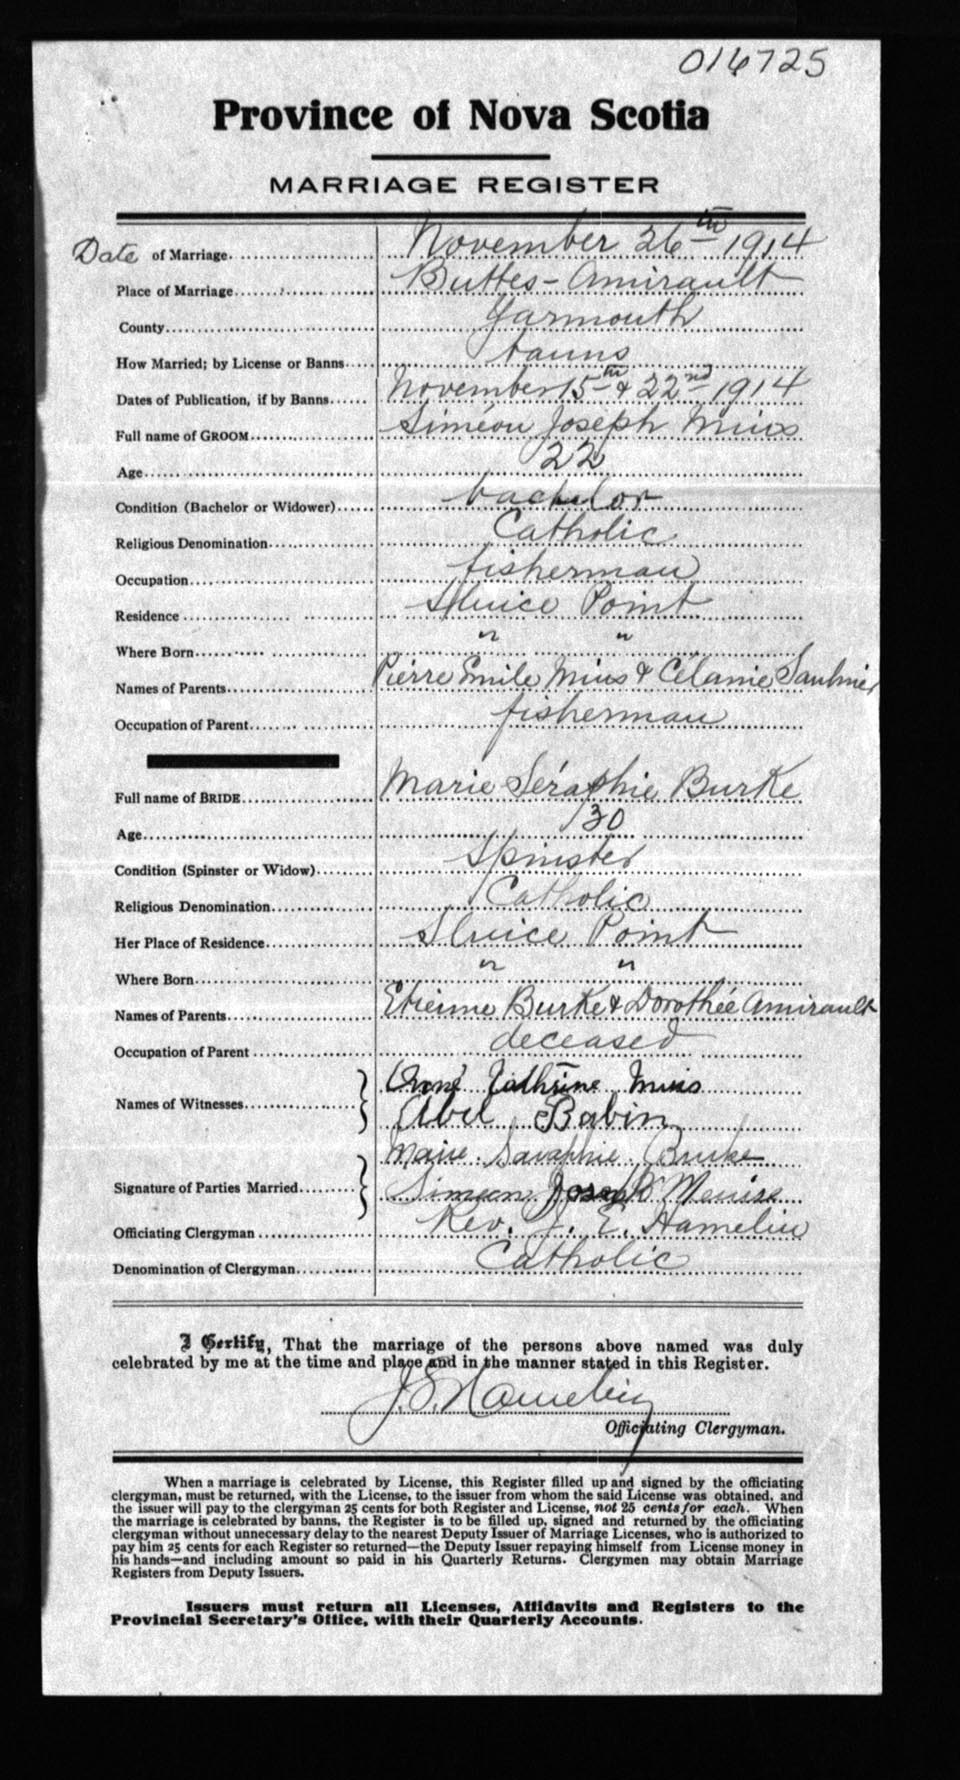 016725
Province of Nova Scotia
MARRIAGE REGISTER
Date of Marriage. November 26th 1914
Place of Marriage Buttes-Amirault
County Yarmouth
How Married; by License or Banns banns
Dates of Publication, if by Banns November 15th & 22nd 1914
Full name of GROOM Siméon Joseph Mius
Age 22
Condition (Bachelor or Widower) bachelor
Religious Denomination Catholic
Occupation fisherman
Residence Sluice Point
Where Born " "
Names of Parents Pierre Emile Mius & Célanie Saulnier
Occupation of Parent fisherman
Full name of BRIDE Marie Séraphie Burke
Age 30
Condition (Spinster or Widow) Spinster
Religious Denomination Catholic
Her Place of Residence Sluice Point
Where Born " "
Names of Parents Etienne Burke & Dorothée Amirault
Occupation of Parent deceased
Names of Witnesses Mius
Abel Babin
Signature of Parties Married Marie Saraphie Burke
Simeon Joseph
Officiating Clergyman Rev. J. E. Hamelin
Denomination of Clergyman Catholic
I Certify, That the marriage of the persons above named was duly
celebrated by me at the time and place and in the manner stated in this Register.
J.E. Hamelin
Officiating Clergyman.
When a marriage is celebrated by License, this Register filled up and signed by the officiating
clergyman, must be returned, with the License, to the issuer from whom the said License was obtained, and
the issuer will pay to the clergyman 25 cents for both Register and License, not 25 cents for each. When
the marriage is celebrated by banns, the Register is to be filled up, signed and returned by the officiating
clergyman without unnecessary delay to the nearest Deputy Issuer of Marriage Licenses, who is authorized to
pay him 25 cents for each Register so returned—the Deputy Issuer repaying himself from License money in
his hands—and including amount so paid in his Quarterly Returns. Clergymen may obtain Marriage
Registers from Deputy Issuers.
Issuers must return all Licenses, Affidavits and Registers to the
Provincial Secretary's Office, with their Quarterly Accounts.